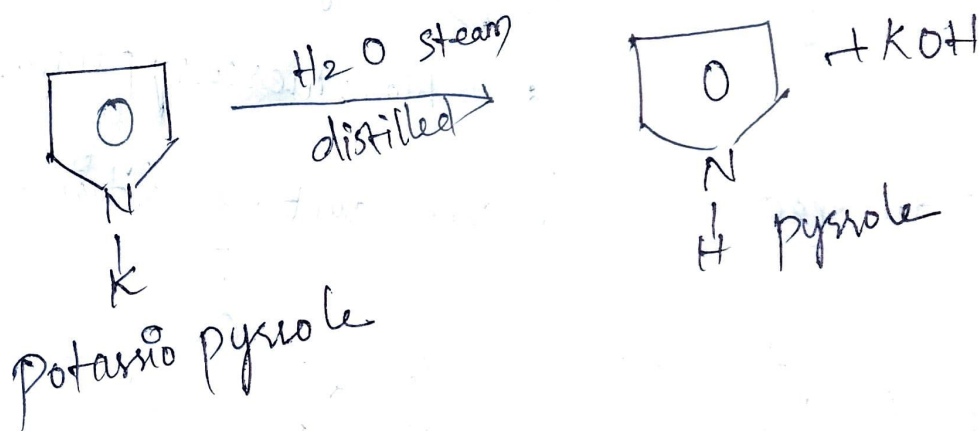 H2O steam
distilled
O
N
K
potassio pyrrole
O
N
H
pyrrole
+ KOH